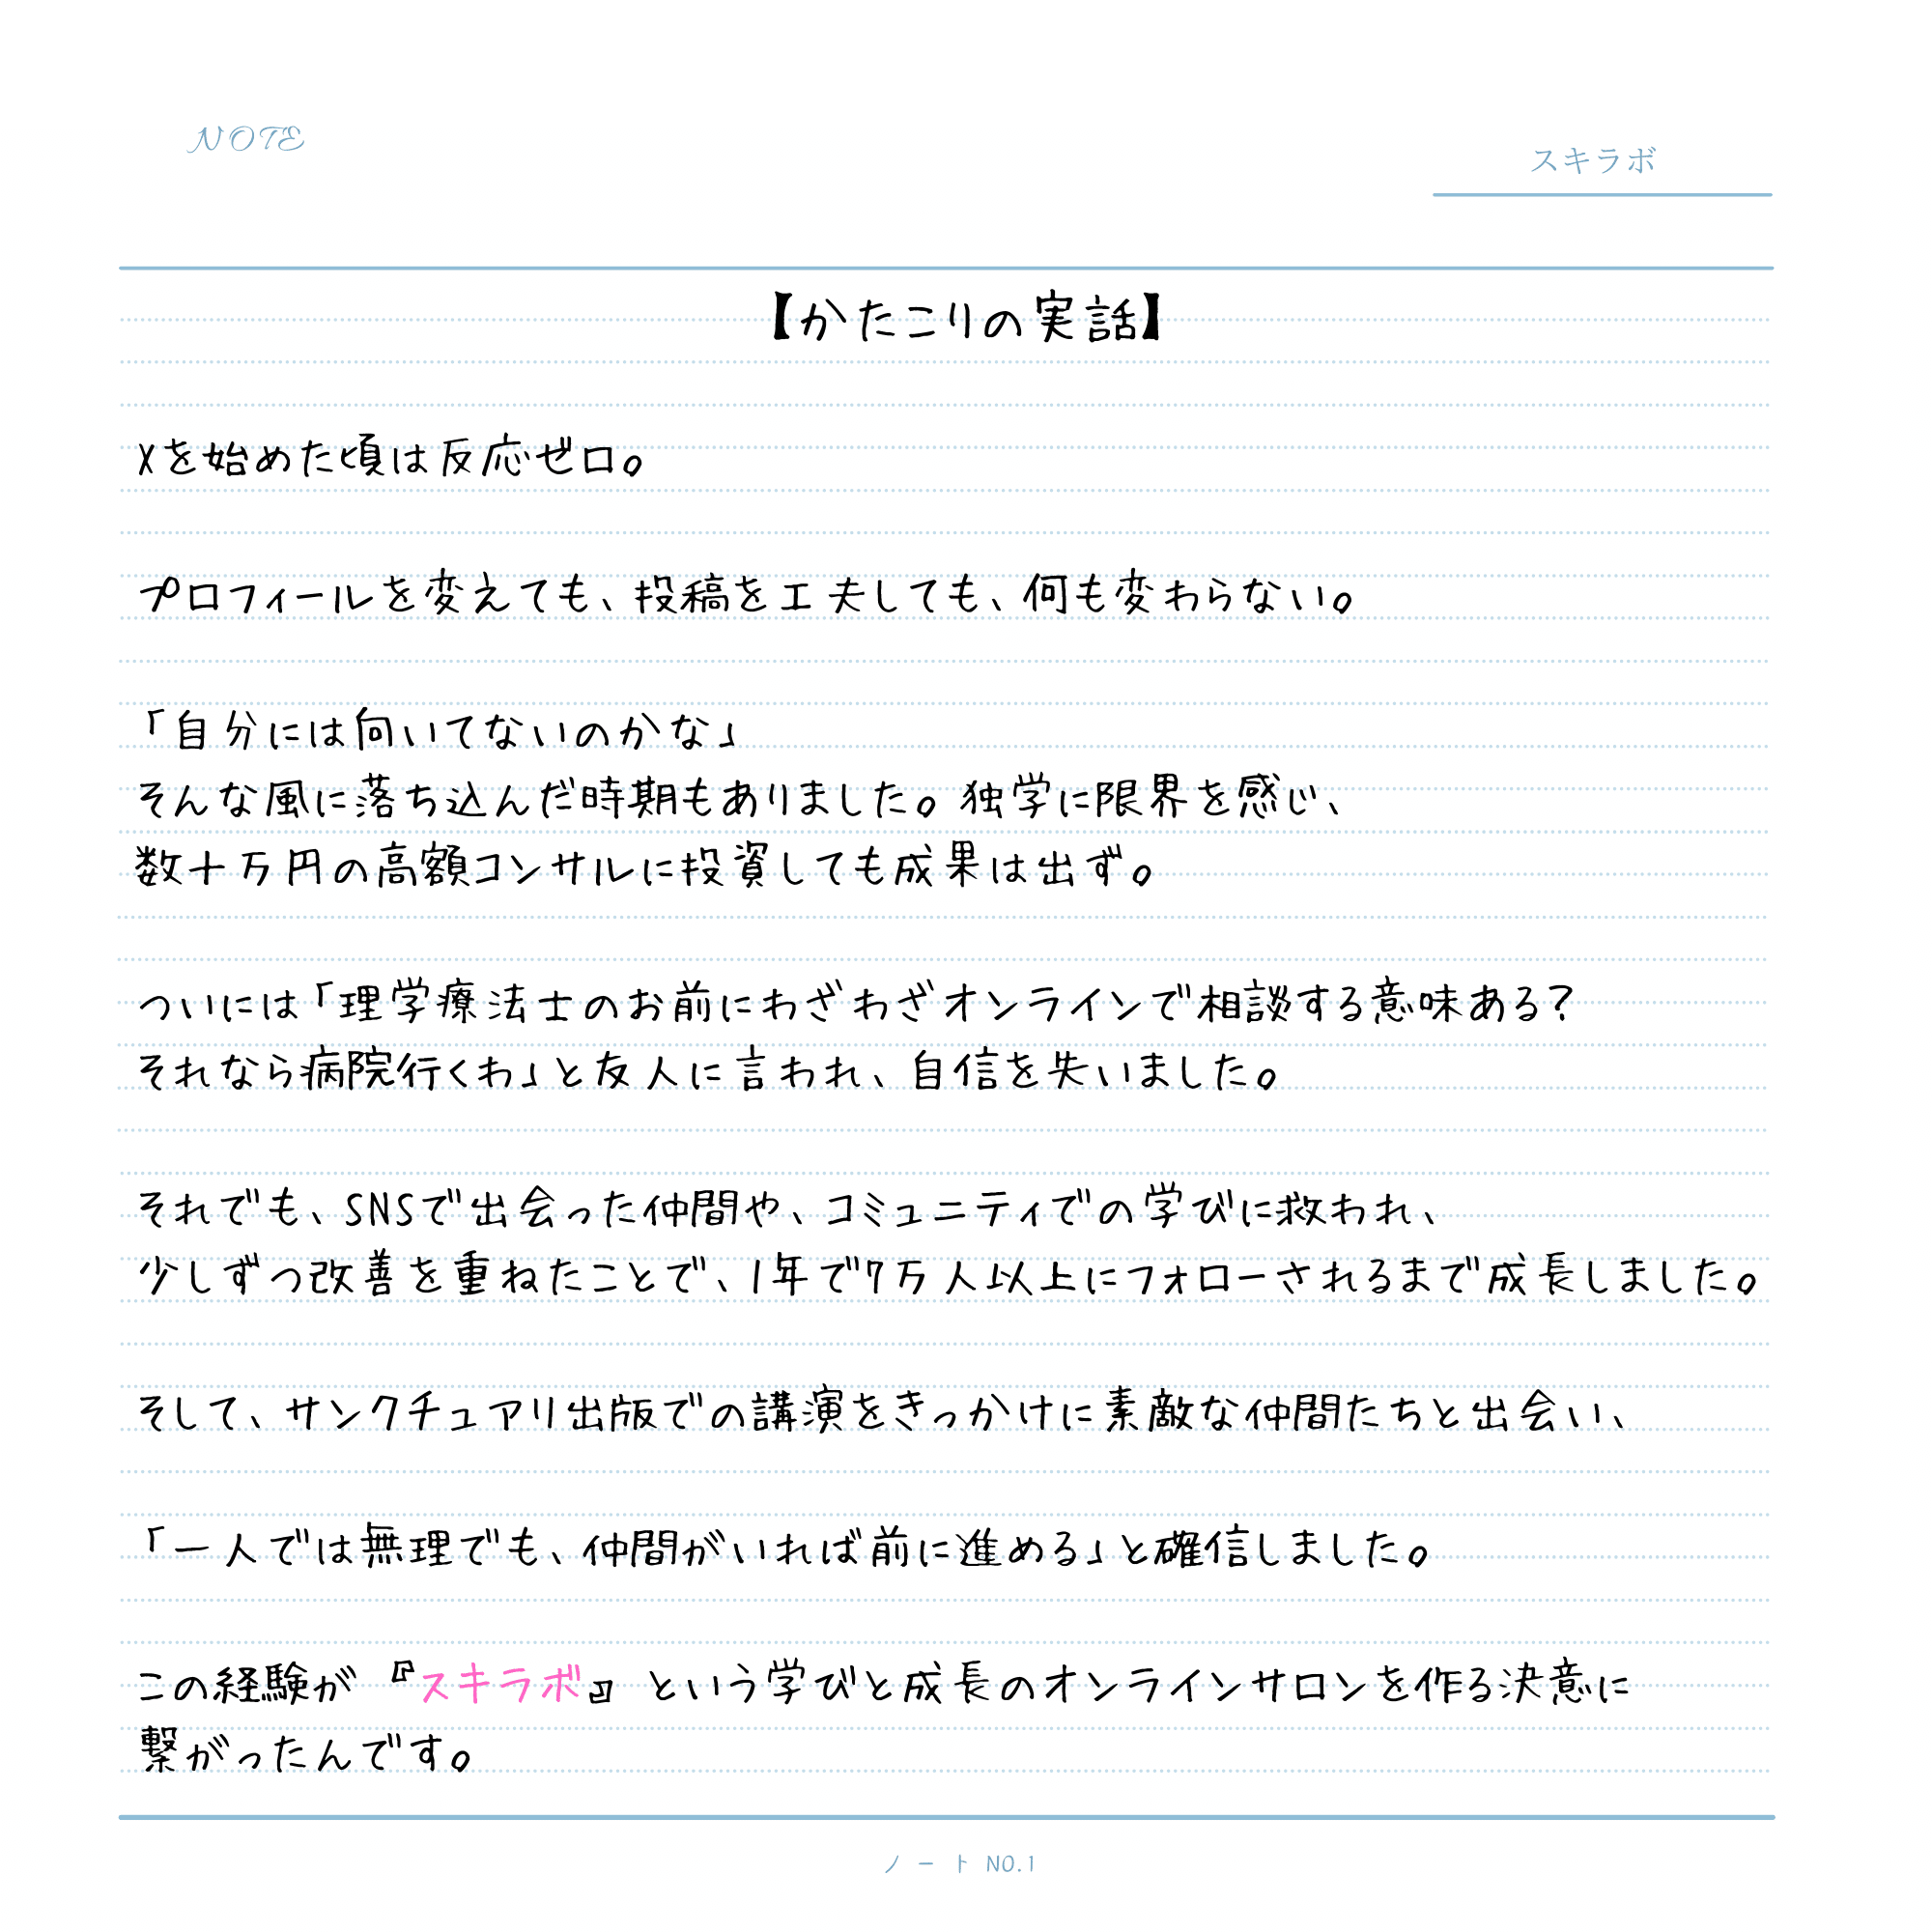 NOTE
スキラボ
【かたこりの実話】
Xを始めた頃は反応ゼロ。
プロフィールを変えても、投稿を工夫しても、何も変わらない。
「自分には向いてないのかな」
そんな風に落ち込んだ時期もありました。独学に限界を感じ、
数十万円の高額コンサルに投資しても成果は出ず。
ついには「理学療法士のお前にわざわざオンラインで相談する意味ある?
それなら病院行くわ」と友人に言われ、自信を失いました。
それでも、SNSで出会った仲間や、コミュニティでの学びに救われ、
少しずつ改善を重ねたことで、1年で7万人以上にフォローされるまで成長しました。
そして、サンクチュアリ出版での講演をきっかけに素敵な仲間たちと出会い、
「一人では無理でも、仲間がいれば前に進める」と確信しました。
この経験が『スキラボ』という学びと成長のオンラインサロンを作る決意に
繋がったんです。
ノート NO.1